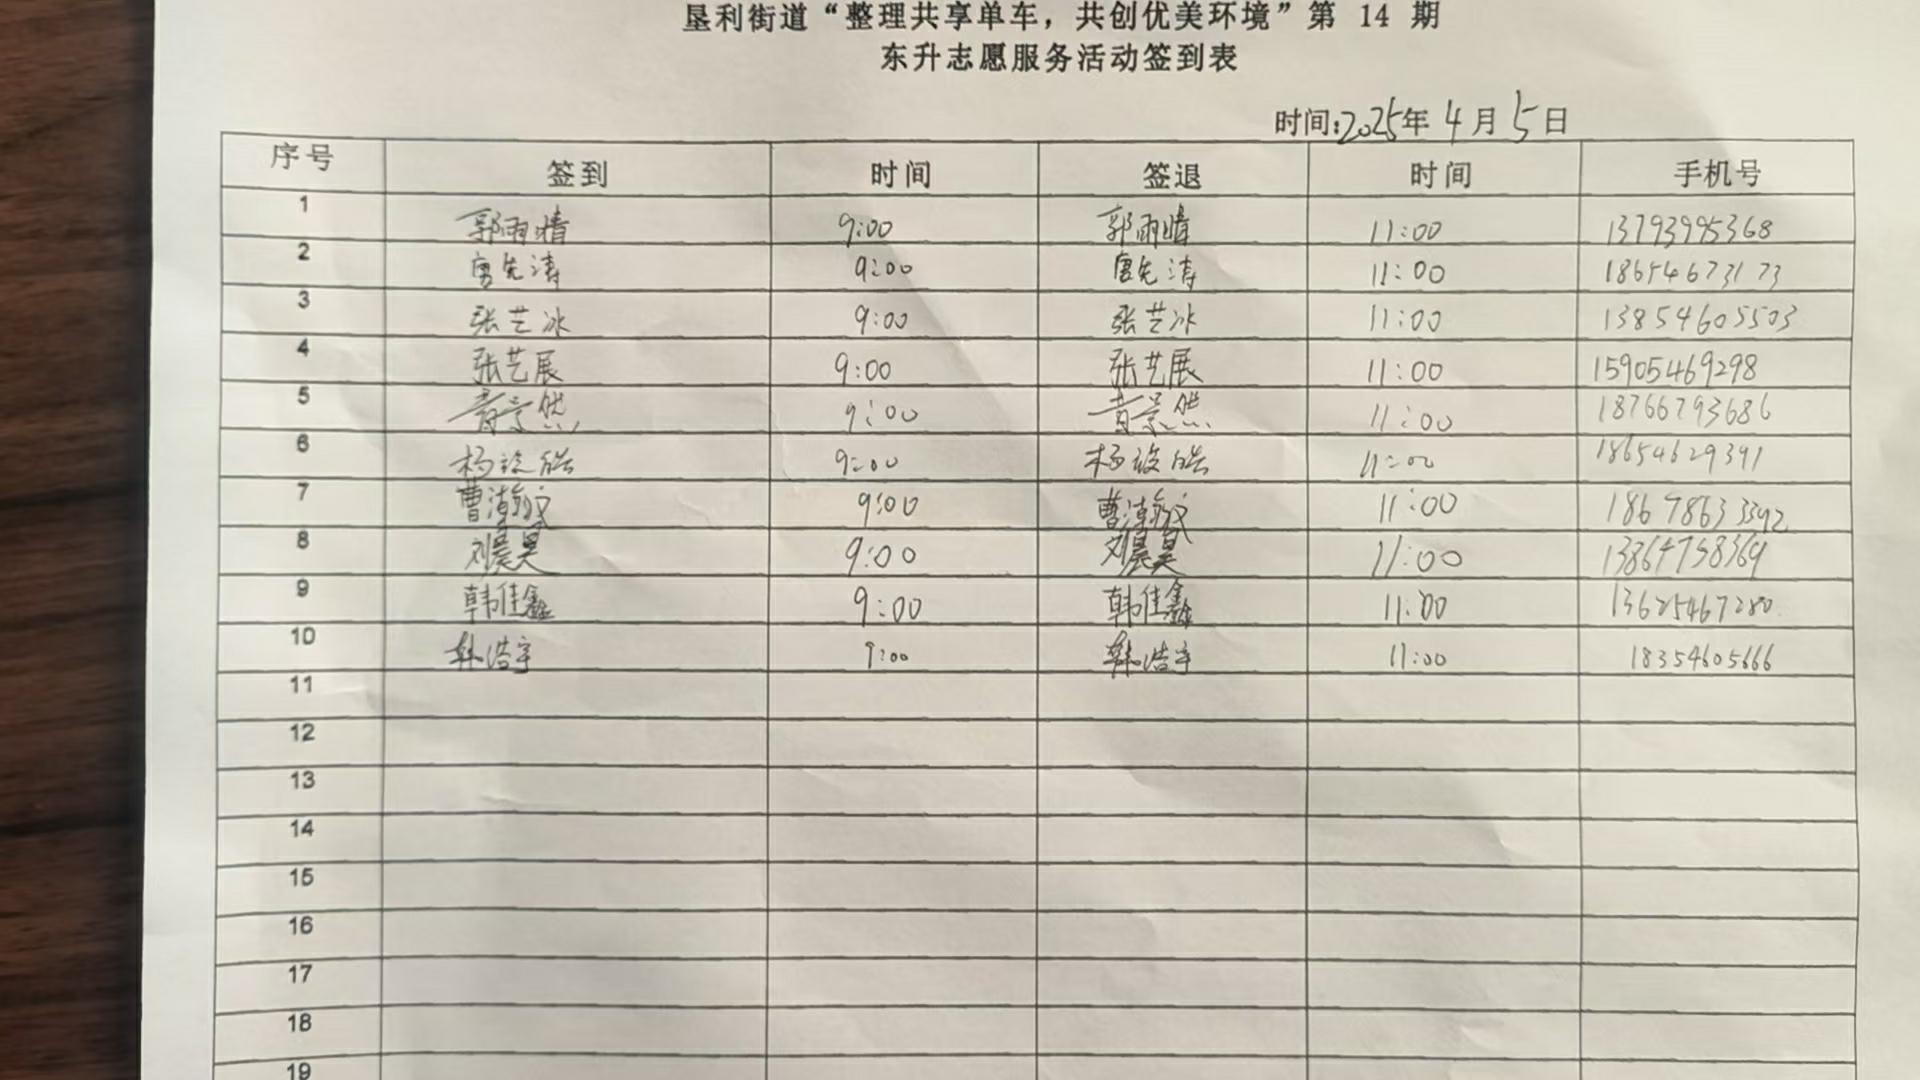 垦利街道“整理共享单车，共创优美环境”第 14 期
东升志愿服务活动签到表
时间:2025年 4月 5日
序号 签到 时间 签退 时间 手机号
1 郭雨晴 9:00 郭雨晴 11:00 13793995368
2 唐先涛 9:00 唐先涛 11:00 18654673173
3 张艺冰 9:00 张艺冰 11:00 13854605503
4 张艺展 9:00 张艺展 11:00 15905469298
5 景然 9:00 景然 11:00 18766793686
6 杨 皓 9:00 杨 皓 11:00 18654629391
7 曹 9:00 曹 11:00 18678633392
8 刘晨昊 9:00 刘晨昊 11:00 13864758369
9 韩佳鑫 9:00 韩佳鑫 11:00 13625467280
10 韩浩宇 9:00 韩浩宇 11:00 18354605666
11
12
13
14
15
16
17
18
19